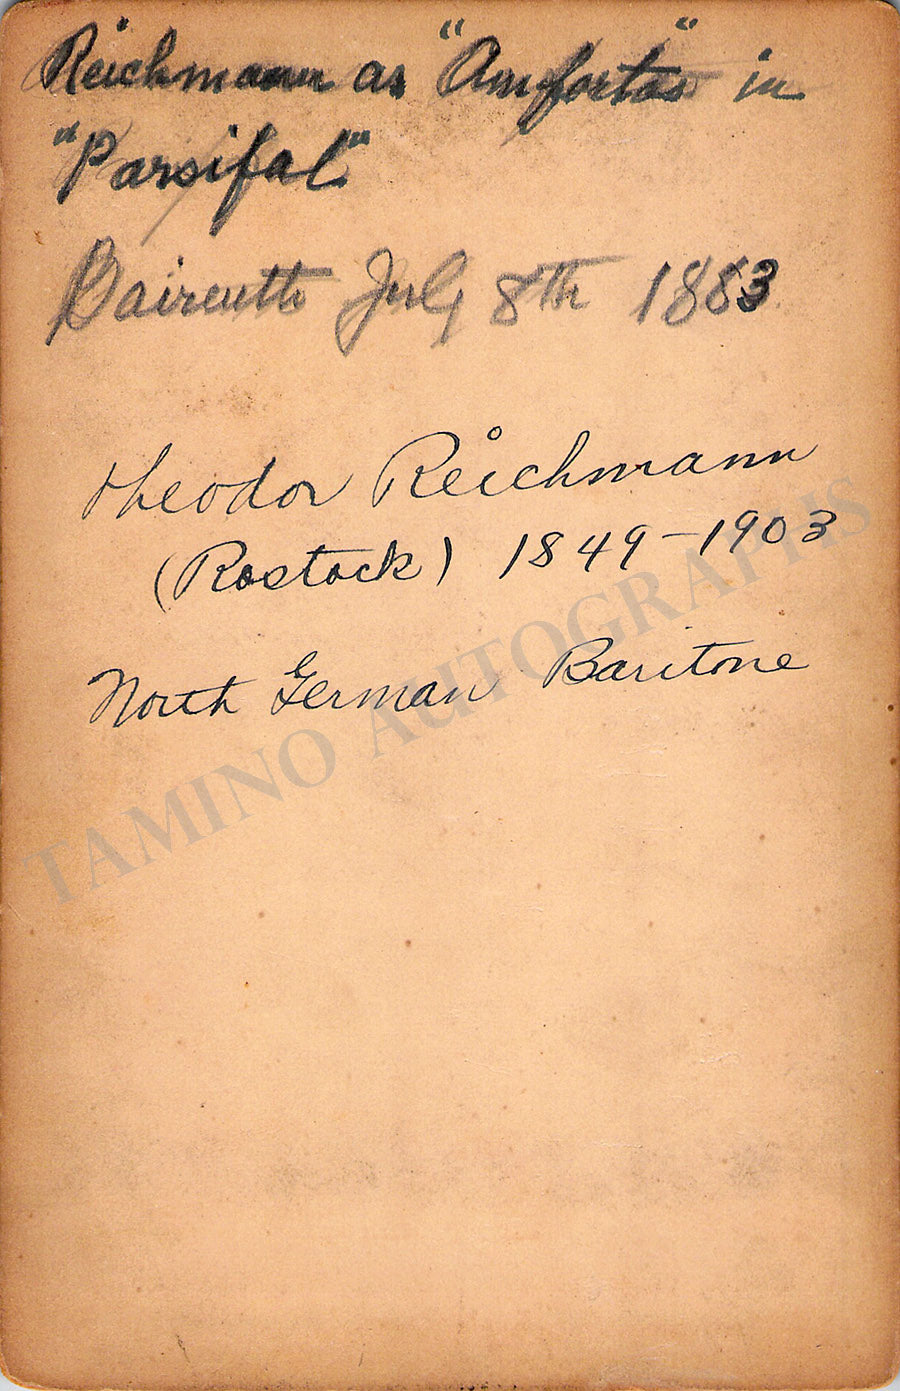 Reichmann as "Amfortas" in
"Parsifal"
Baireuth July 8th 1883
Theodor Reichmann
(Rostock) 1849-1903
North German Baritone
TAMINO AUTOGRAPHS